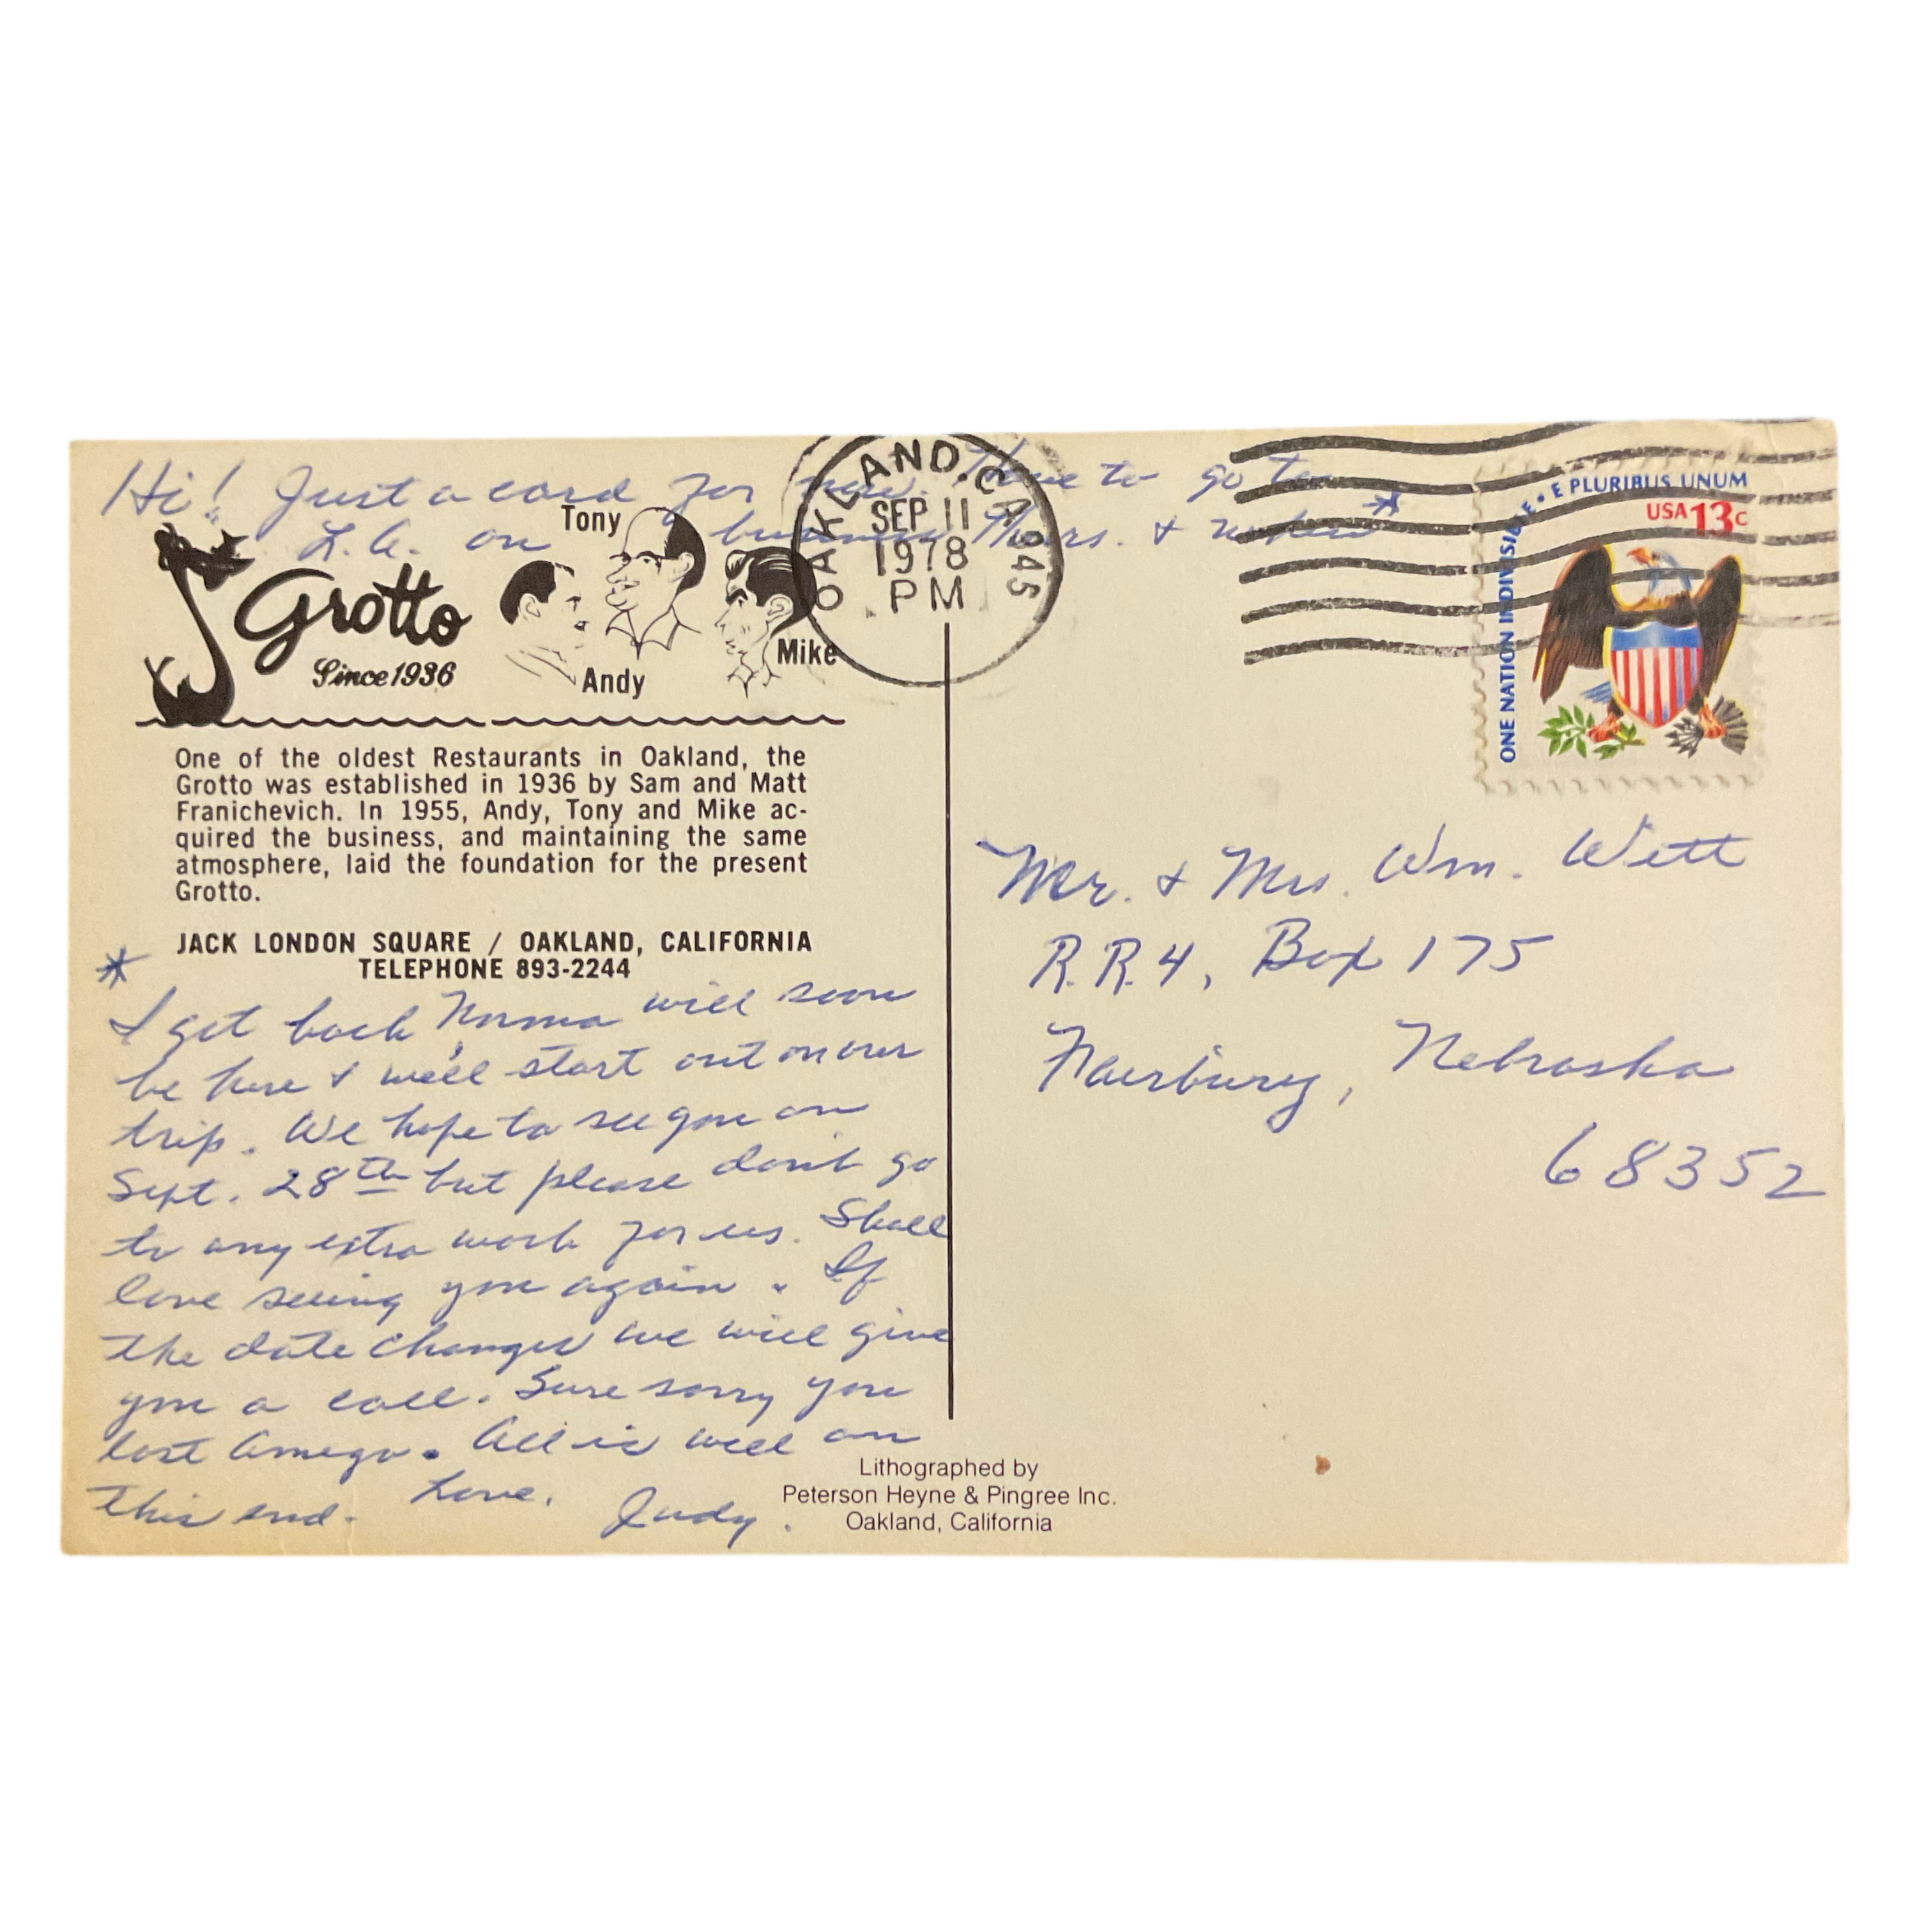 Hi! Just a card for now. Have to go to
L.A. on business Thurs. & when *
Tony
Andy
Mike
Grotto
Since 1936
One of the oldest Restaurants in Oakland, the
Grotto was established in 1936 by Sam and Matt
Franichevich. In 1955, Andy, Tony and Mike ac-
quired the business, and maintaining the same
atmosphere, laid the foundation for the present
Grotto.
JACK LONDON SQUARE / OAKLAND, CALIFORNIA
TELEPHONE 893-2244
*
I get back Norma will soon
be here & we'll start out on our
trip. We hope to see you on
Sept. 28th but please don't go
to any extra work for us. Shall
love seeing you again. If
the date changes we will give
you a call. Sure sorry you
lost Amego. All is well on
this end. Love, Judy.
OAKLAND, CA 945
SEP 11
1978
PM
ONE NATION INDIVISIBLE • E PLURIBUS UNUM
USA 13c
Mr. & Mrs. Wm. Wett
R.R. 4, Box 175
Fairbury, Nebraska
68352
Lithographed by
Peterson Heyne & Pingree Inc.
Oakland, California